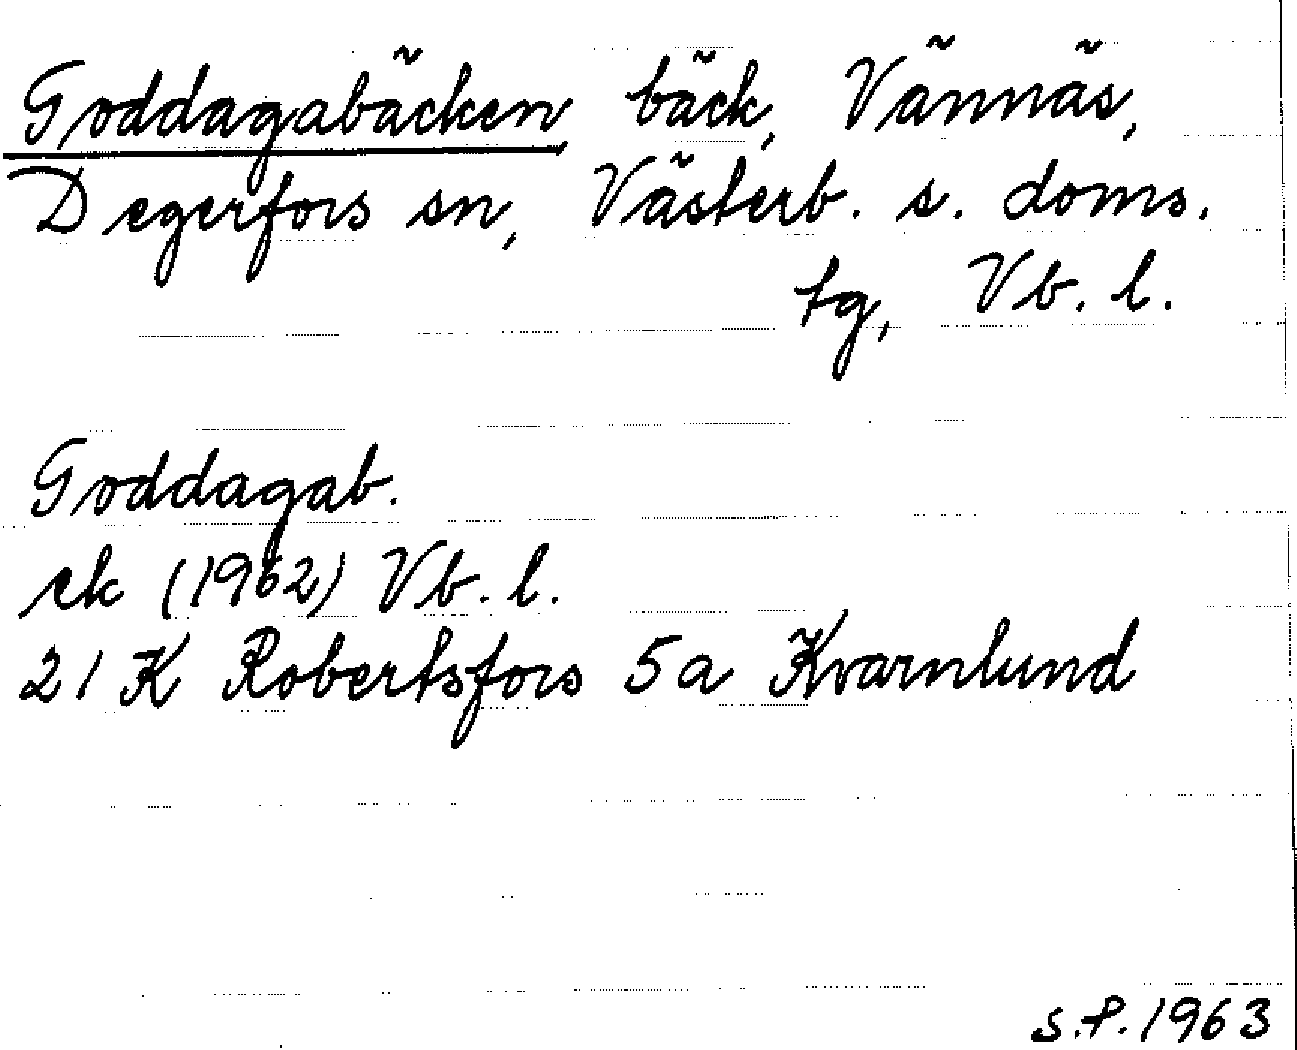 Goddagabäcken bäck, Vännäs,
Degerfors sn, Västerb. s. doms.
tg, Vb. l.
Goddagab.
ek (1962) Vb. l.
21 K Robertsfors 5a Kvarnlund
S.P. 1963